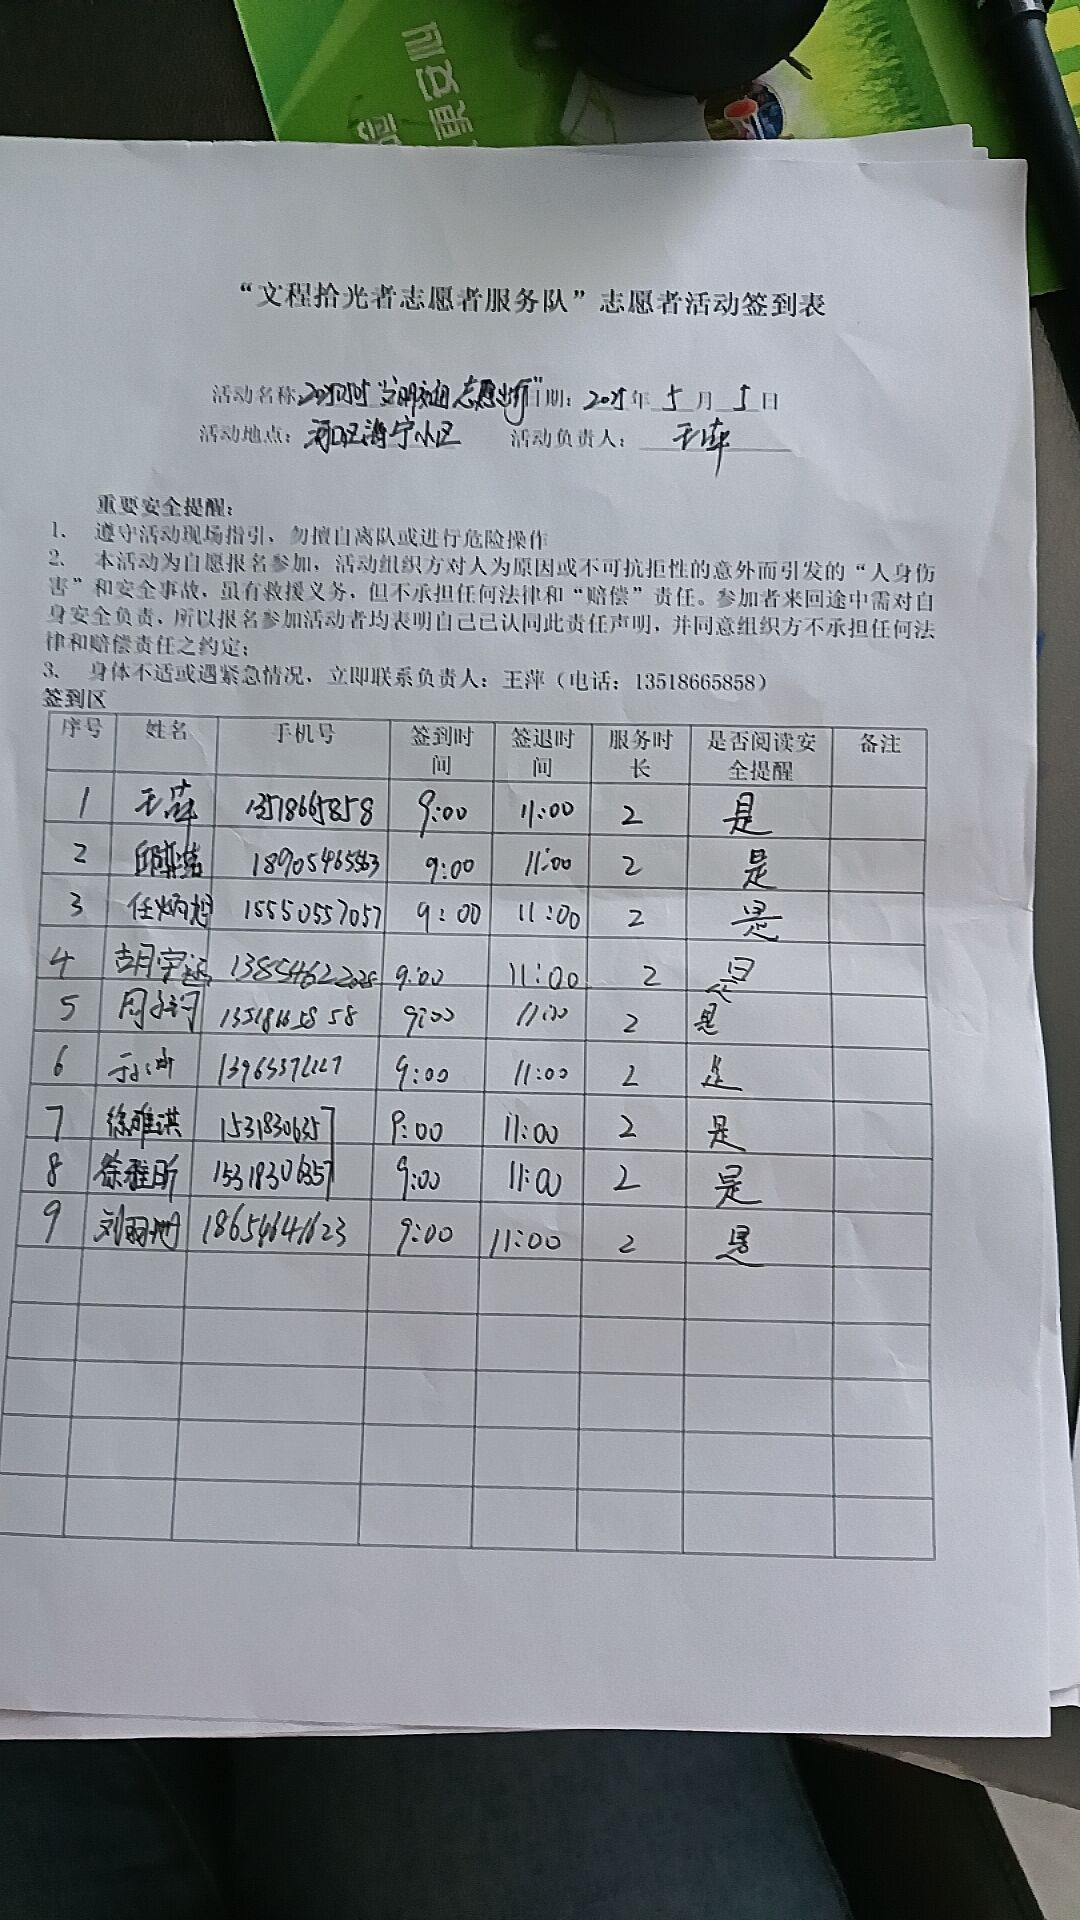 “文程拾光者志愿者服务队”志愿者活动签到表
活动名称: 文明交通 志愿出行” 日期: 2025年 5 月 5 日
活动地点: 河口区海宁小区 活动负责人: 王萍
重要安全提醒:
1. 遵守活动现场指引,勿擅自离队或进行危险操作
2. 本活动为自愿报名参加,活动组织方对人为原因或不可抗拒性的意外而引发的“人身伤
害”和安全事故,虽有救援义务,但不承担任何法律和“赔偿”责任。参加者来回途中需对自
身安全负责,所以报名参加活动者均表明自己已认同此责任声明,并同意组织方不承担任何法
律和赔偿责任之约定;
3. 身体不适或遇紧急情况,立即联系负责人:王萍(电话:13518665858)
签到区
序号 姓名 手机号 签到时间 签退时间 服务时长 是否阅读安全提醒 备注
1 王萍 13518665858 9:00 11:00 2 是
2 18905465563 9:00 11:00 2 是
3 任炳旭 15550557057 9:00 11:00 2 是
4 胡宇 9:00 11:00 2 是
5 周 13518665858 9:00 11:00 2 是
6 9:00 11:00 2 是
7 徐雅淇 15318306357 9:00 11:00 2 是
8 徐雅昕 15318306357 9:00 11:00 2 是
9 刘 18654641623 9:00 11:00 2 是